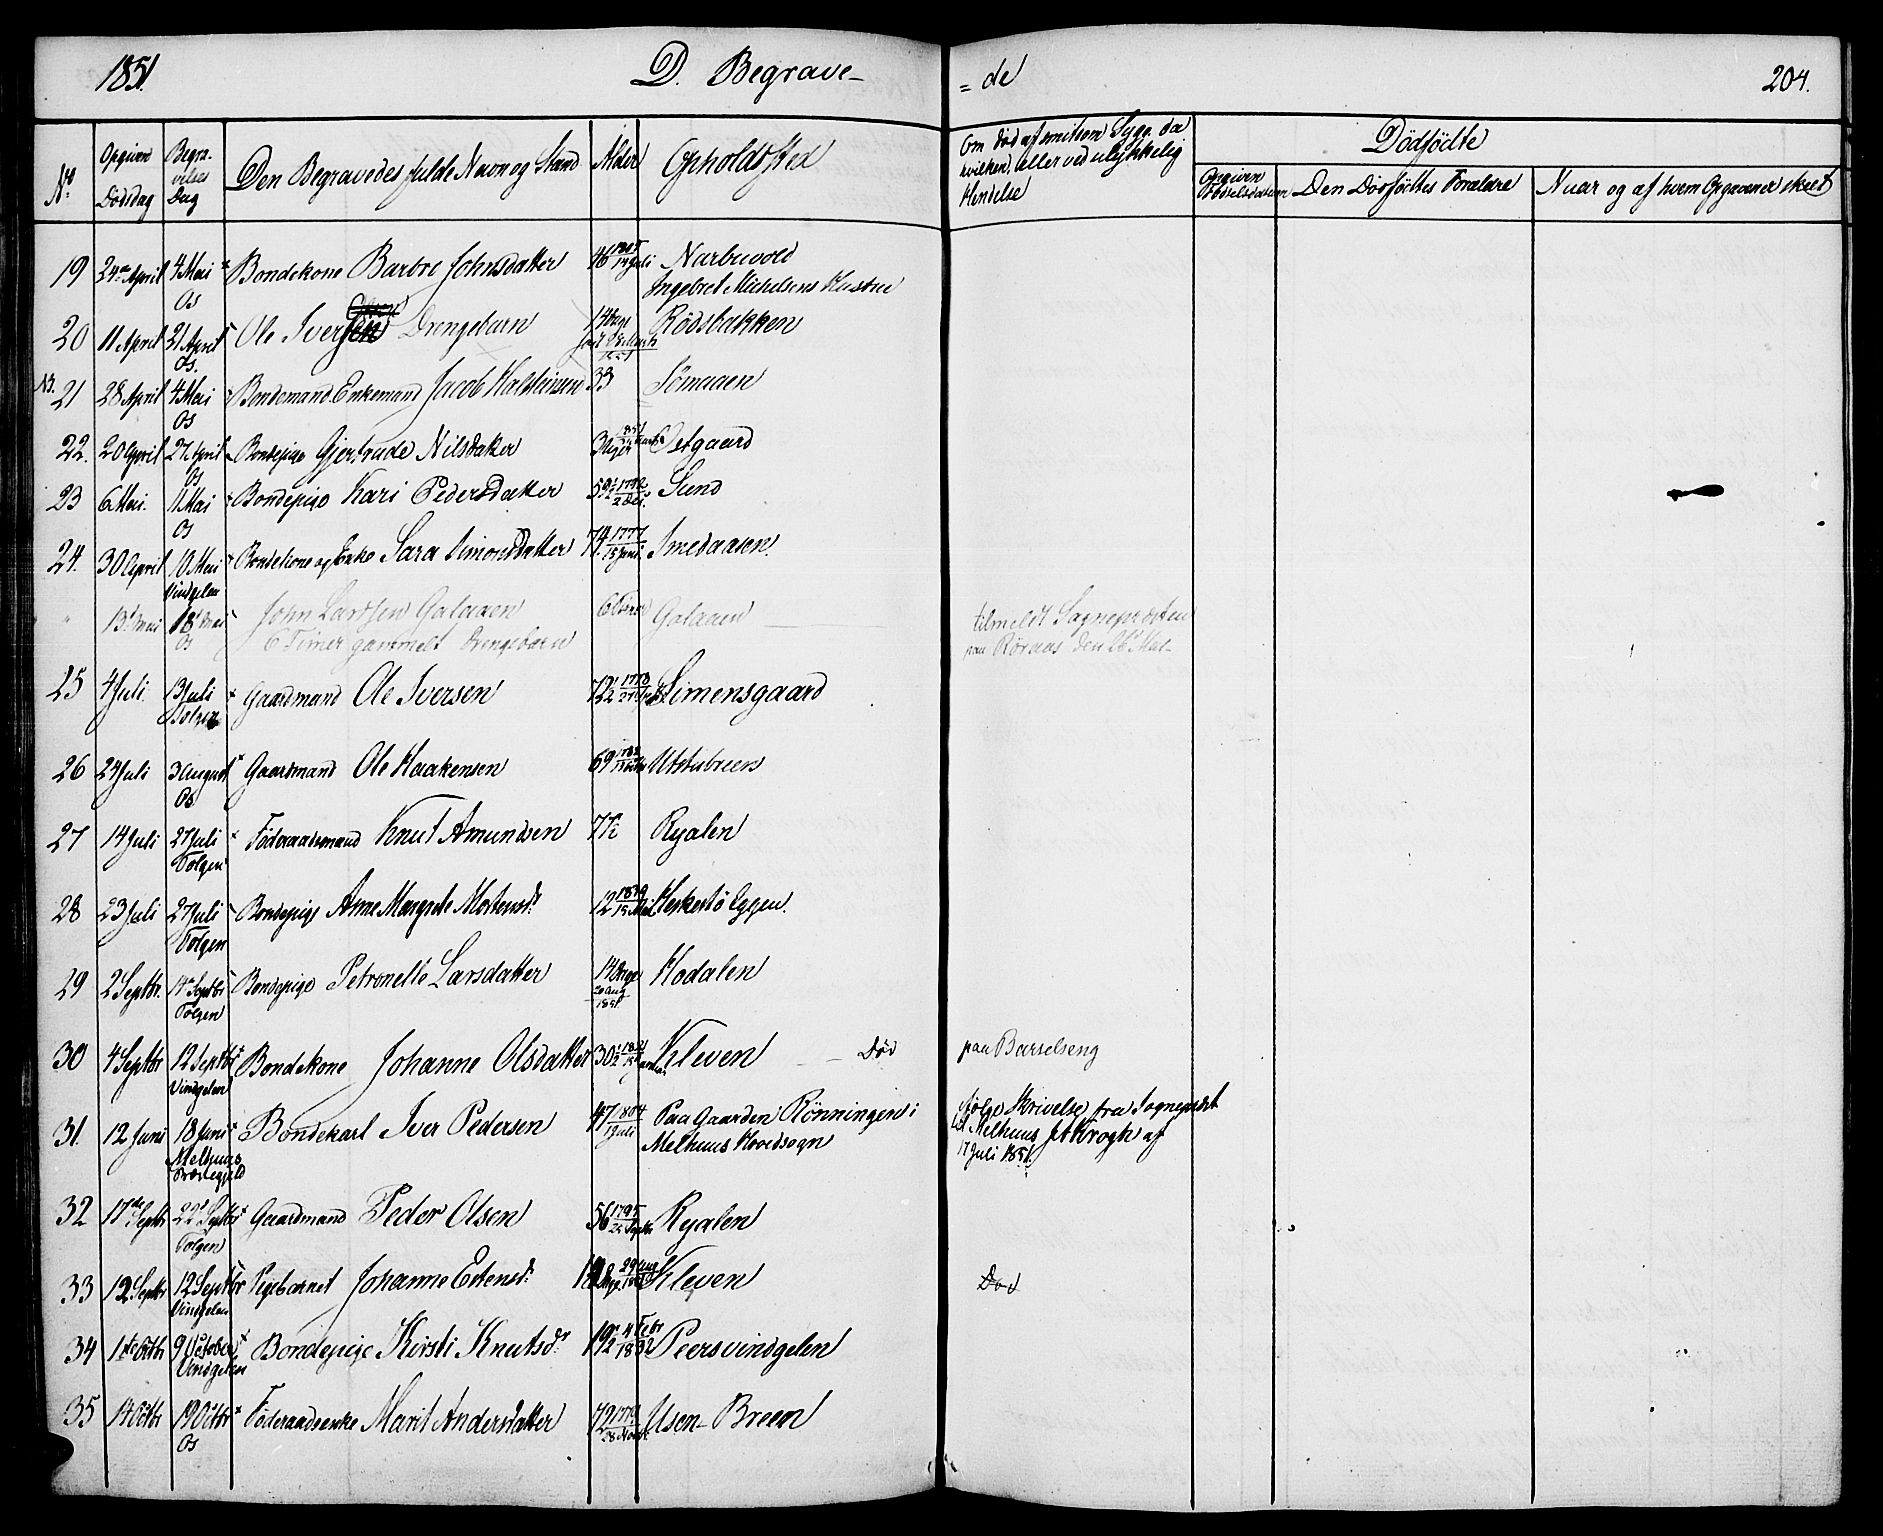 1851. D. Begrave-
= de 204.
No Opgiven Dödsdag Begravelses Dag Den Begravedes fulde Navn og Stand Alder Opholdssted
Om död af smitsom Syge, da hvilken, eller ved ulykkelig Hendelse
Dödfödte
Opgiven Födselsdatum Den Dödfödtes Forældre Naar og af hvem Opgaven er skeet
19 24de April 4 Mai Os Bondekone Barbro Johnsdatter 46 14 Juli Narbuvold
Ingebret Michelsens Kustru
20 11 April 21 April Os. Ole Iversen Drengebarn 14 Dage Rödsbakken
NB. 21 28 April 4 Mai Os Bondemand. Enkemand Jacob Halsteinsen 33 Sömaaen
22. 20 April 27 April Os Bondepige Gjertrude Nilsdatter 3 Uger Östgaard
23 6 Mai. 11 Mai Os Bondepige Kari Pedersdatter 59 Sund
24. 30 April 10 Mai Vindgelen Bondekone og Enke Sara Simonsdatter 74 1777 15 Juni Smedaasen.
" 13 Mai 18 Mai Os John Larssen Galaaen 6 Timer Galaaen
6 Timer gammelt Drengebarn
tilmeldt Sognepræsten
paa Röraas den 26 Mai
25 4 Juli. 13 Juli Tolgen Gaardmand Ole Iversen 72 Simensgaard
26 24 Juli 3 August Os Gaardmand Ole Haakensen 69 1782 Utstubreen
27 14 Juli 27 Juli Tolgen Föderaadsmand Knut Amundsen 77 Ryalen
28 23 Juli 27 Juli Tolgen Bondepige Anne Margrete Mortensdr 12 1839 15 Mai Eggen.
29 2 Septbr. 14 Septbr Tolgen Bondepige Petronelle Larsdatter 14 Dage 20 Aug 1851 Hodalen
30 4 Septbr 12 Septbr Vindgelen Bondekone Johanne Olsdatter 30 Kleven Död
paa Barselseng
31. 12 Juni 18 Juni Melhuus Præstegjeld Bondekarl Iver Pedersen 47 1804 Juli Paa Gaarden Rönningen i
Melhuus Hovedsogn
ifölge Skrivelse fra Sognepræst
til Melhuus Krogh af
17 Juli 1851.
32 17de Septbr 22 Septbr Tolgen Gaardmand Peder Olsen 56 1795 Septbr Ryalen
33 12 Septbr 12 Septbr Vindgelen Pigebarnet Johanne Estensdr 29 Aug Kleven
Död
34 1ste Octbr 9 October Vindgelen Bondepige Kirsti Knutsdr 19 4 Febr 1832 Peersvindgelen
35 14 Octbr 19 Octbr Os Föderaadsenke Marit Andersdatter 72 Usen-Breen